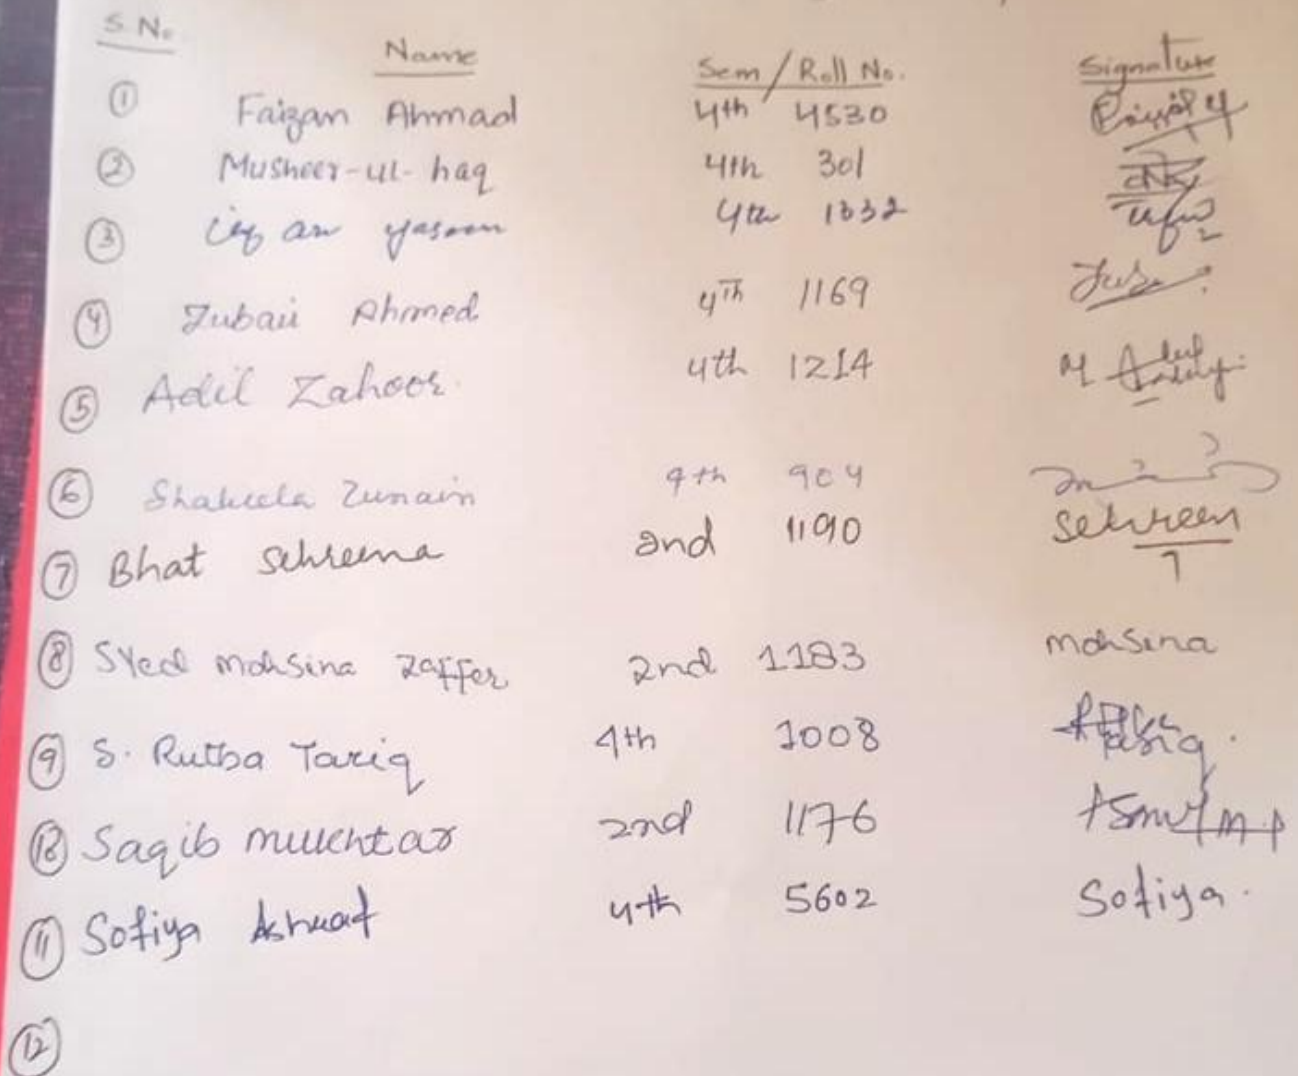 S. No Name Sem / Roll No. Signature
① Faizan Ahmad 4th 4530
② Musheer-ul-haq 4th 301
③ 4th 1332
④ Zubair Ahmed 4Th 1169
⑤ Adil Zahoor 4th 1214
⑥ Shakeela Zunain 4th 904
⑦ Bhat Sehreena 2nd 1190 Sehreen
⑧ Syed Mohsina Zaffer 2nd 1183 Mohsina
⑨ S. Rutba Tariq 4th 1008
⑩ Saqib Mukhtar 2nd 1176
⑪ Sofiya Ashraf 4th 5602 Sofiya.
⑫